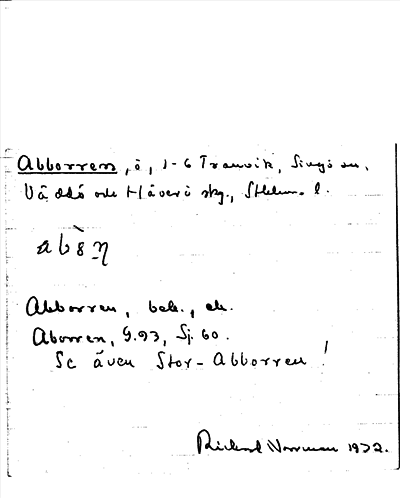 Abborren, ö, 1-6 Tranvik, Singö sn,
Väddö och Häverö skg., Sthlms l.
Abborren, bek., ek.
Aborren, G.93, Sj. 60.
Se även Stor-Abborren!
Rickard Norrman 1932.